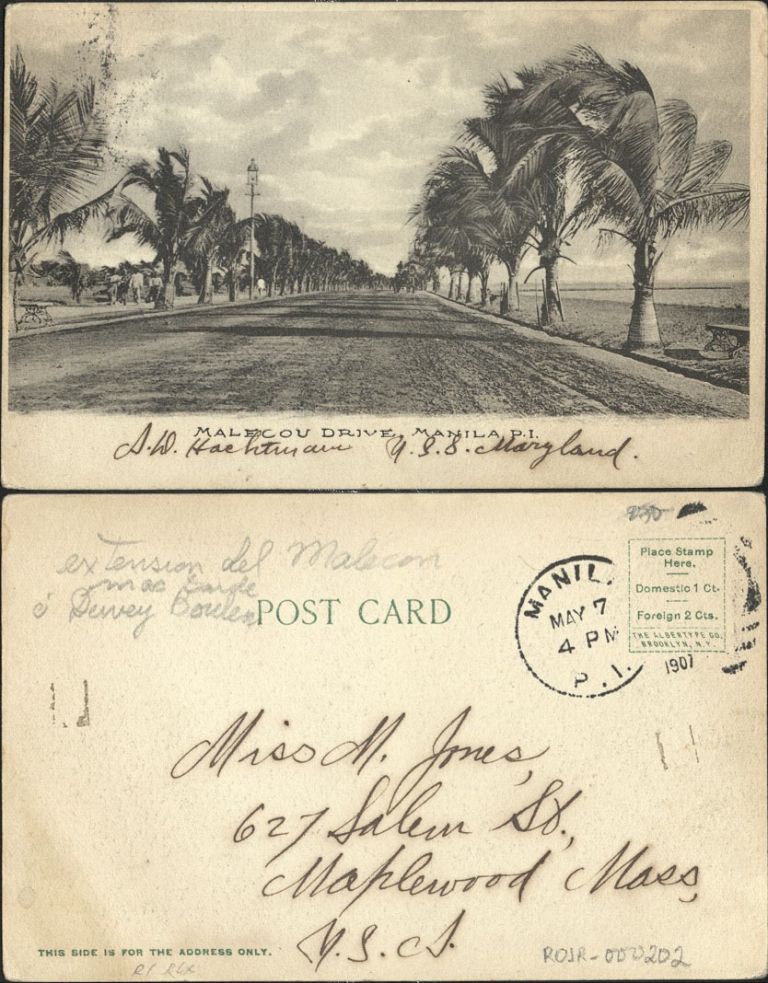 MALECOU DRIVE, MANILA, P.I.
A.W. Hachtmann U.S.S. Maryland.
extension del Malecon
mas tarde
ó Dewey
POST CARD
MANIL.
MAY 7
4 PM
P.I.
1907
Place Stamp
Here.
Domestic 1 Ct.
Foreign 2 Cts.
THE ALBERTYPE CO.
BROOKLYN, N.Y.
Miss M. Jones,
627 Salem St.,
Maplewood Mass,
U.S.A.
THIS SIDE IS FOR THE ADDRESS ONLY.
ROJR-000202